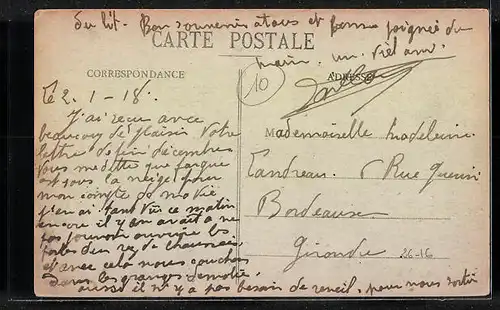 du lit. Bon souvenir a tous et bonne poignée de
main. un vieil ami.
CARTE POSTALE
CORRESPONDANCE
ADRESSE
10
Le 2-1-18.
J'ai reçu avec
beaucoup de plaisir votre
lettre de fin décembre
Vous me dites que
est sous la neige pour
mon compte de ma vie
j'en ai tant vue ce matin
encore il y en avait a ne
pas pouvoir ouvrire les
portes du rez de chaussée
et avec cela nous couchons
dans les granges demolie
aussi il n'y a pas besoin de reveil, pour nous sortir
Mademoiselle Madeleine
Tandreau. Rue Guerin
Bordeaux
Gironde
26-16